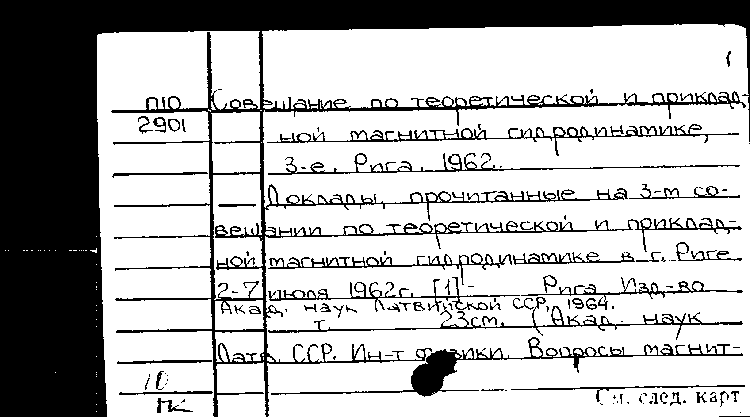 1
П10 Совещание по теоретической и приклад-
2901 ной магнитной гидродинамике,
3-е. Рига. 1962.
Доклады, прочитанные на 3-м со-
вещании по теоретической и приклад-
ной магнитной гидродинамике в г. Риге
2-7 июля 1962г. [1]- Рига. Изд-во
Акад. наук Латвийской ССР, 1964.
т. 23см. (Акад. наук
Латв. ССР. Ин-т физики. Вопросы магнит-
10
ПК
См. след. карт